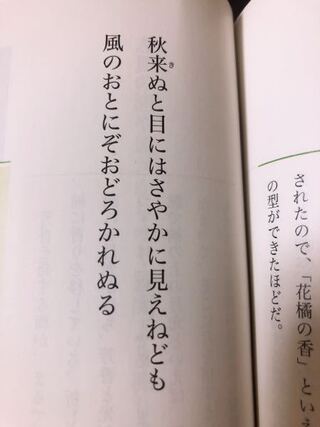 されたので、「花橘の香」とい
の型ができたほどだ。
秋来ぬと目にはさやかに見えねども
き
風のおとにぞおどろかれぬる